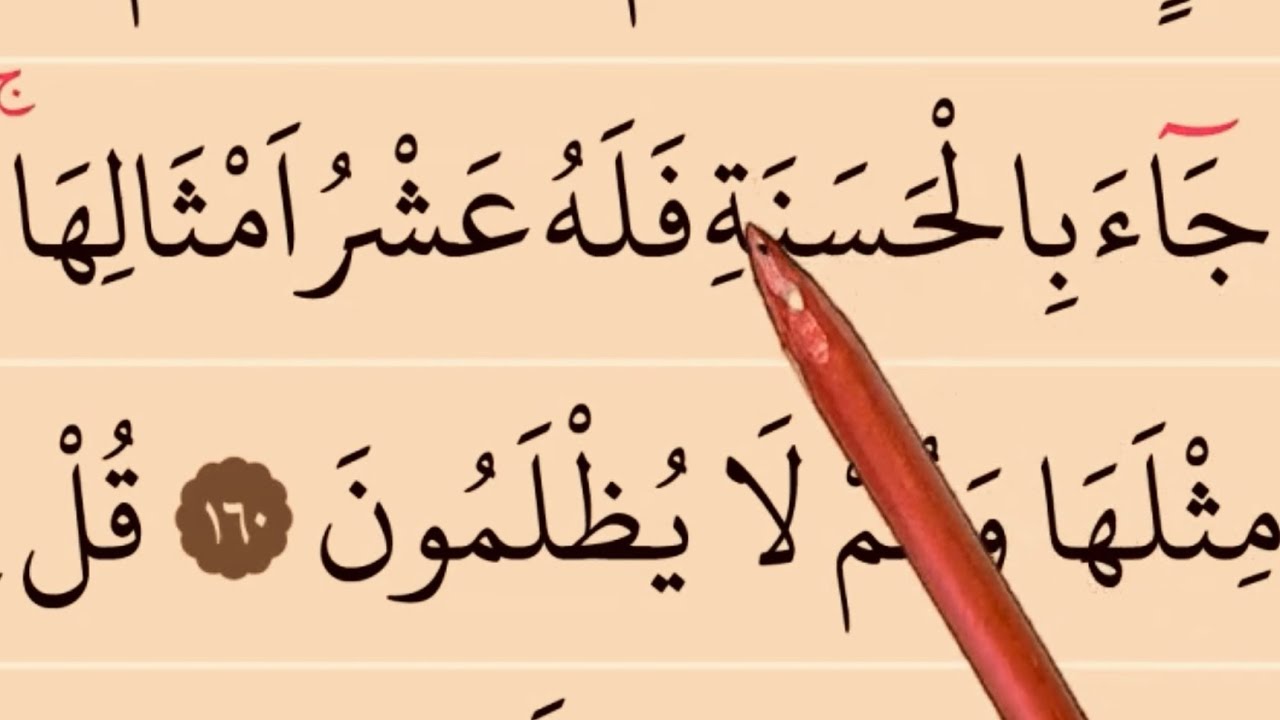 جَآءَ بِالْحَسَنَةِ فَلَهُ عَشْرُ اَمْثَالِهَا ۚ
مِثْلَهَا وَهُمْ لَا يُظْلَمُونَ ﴿١٦٠﴾ قُلْ